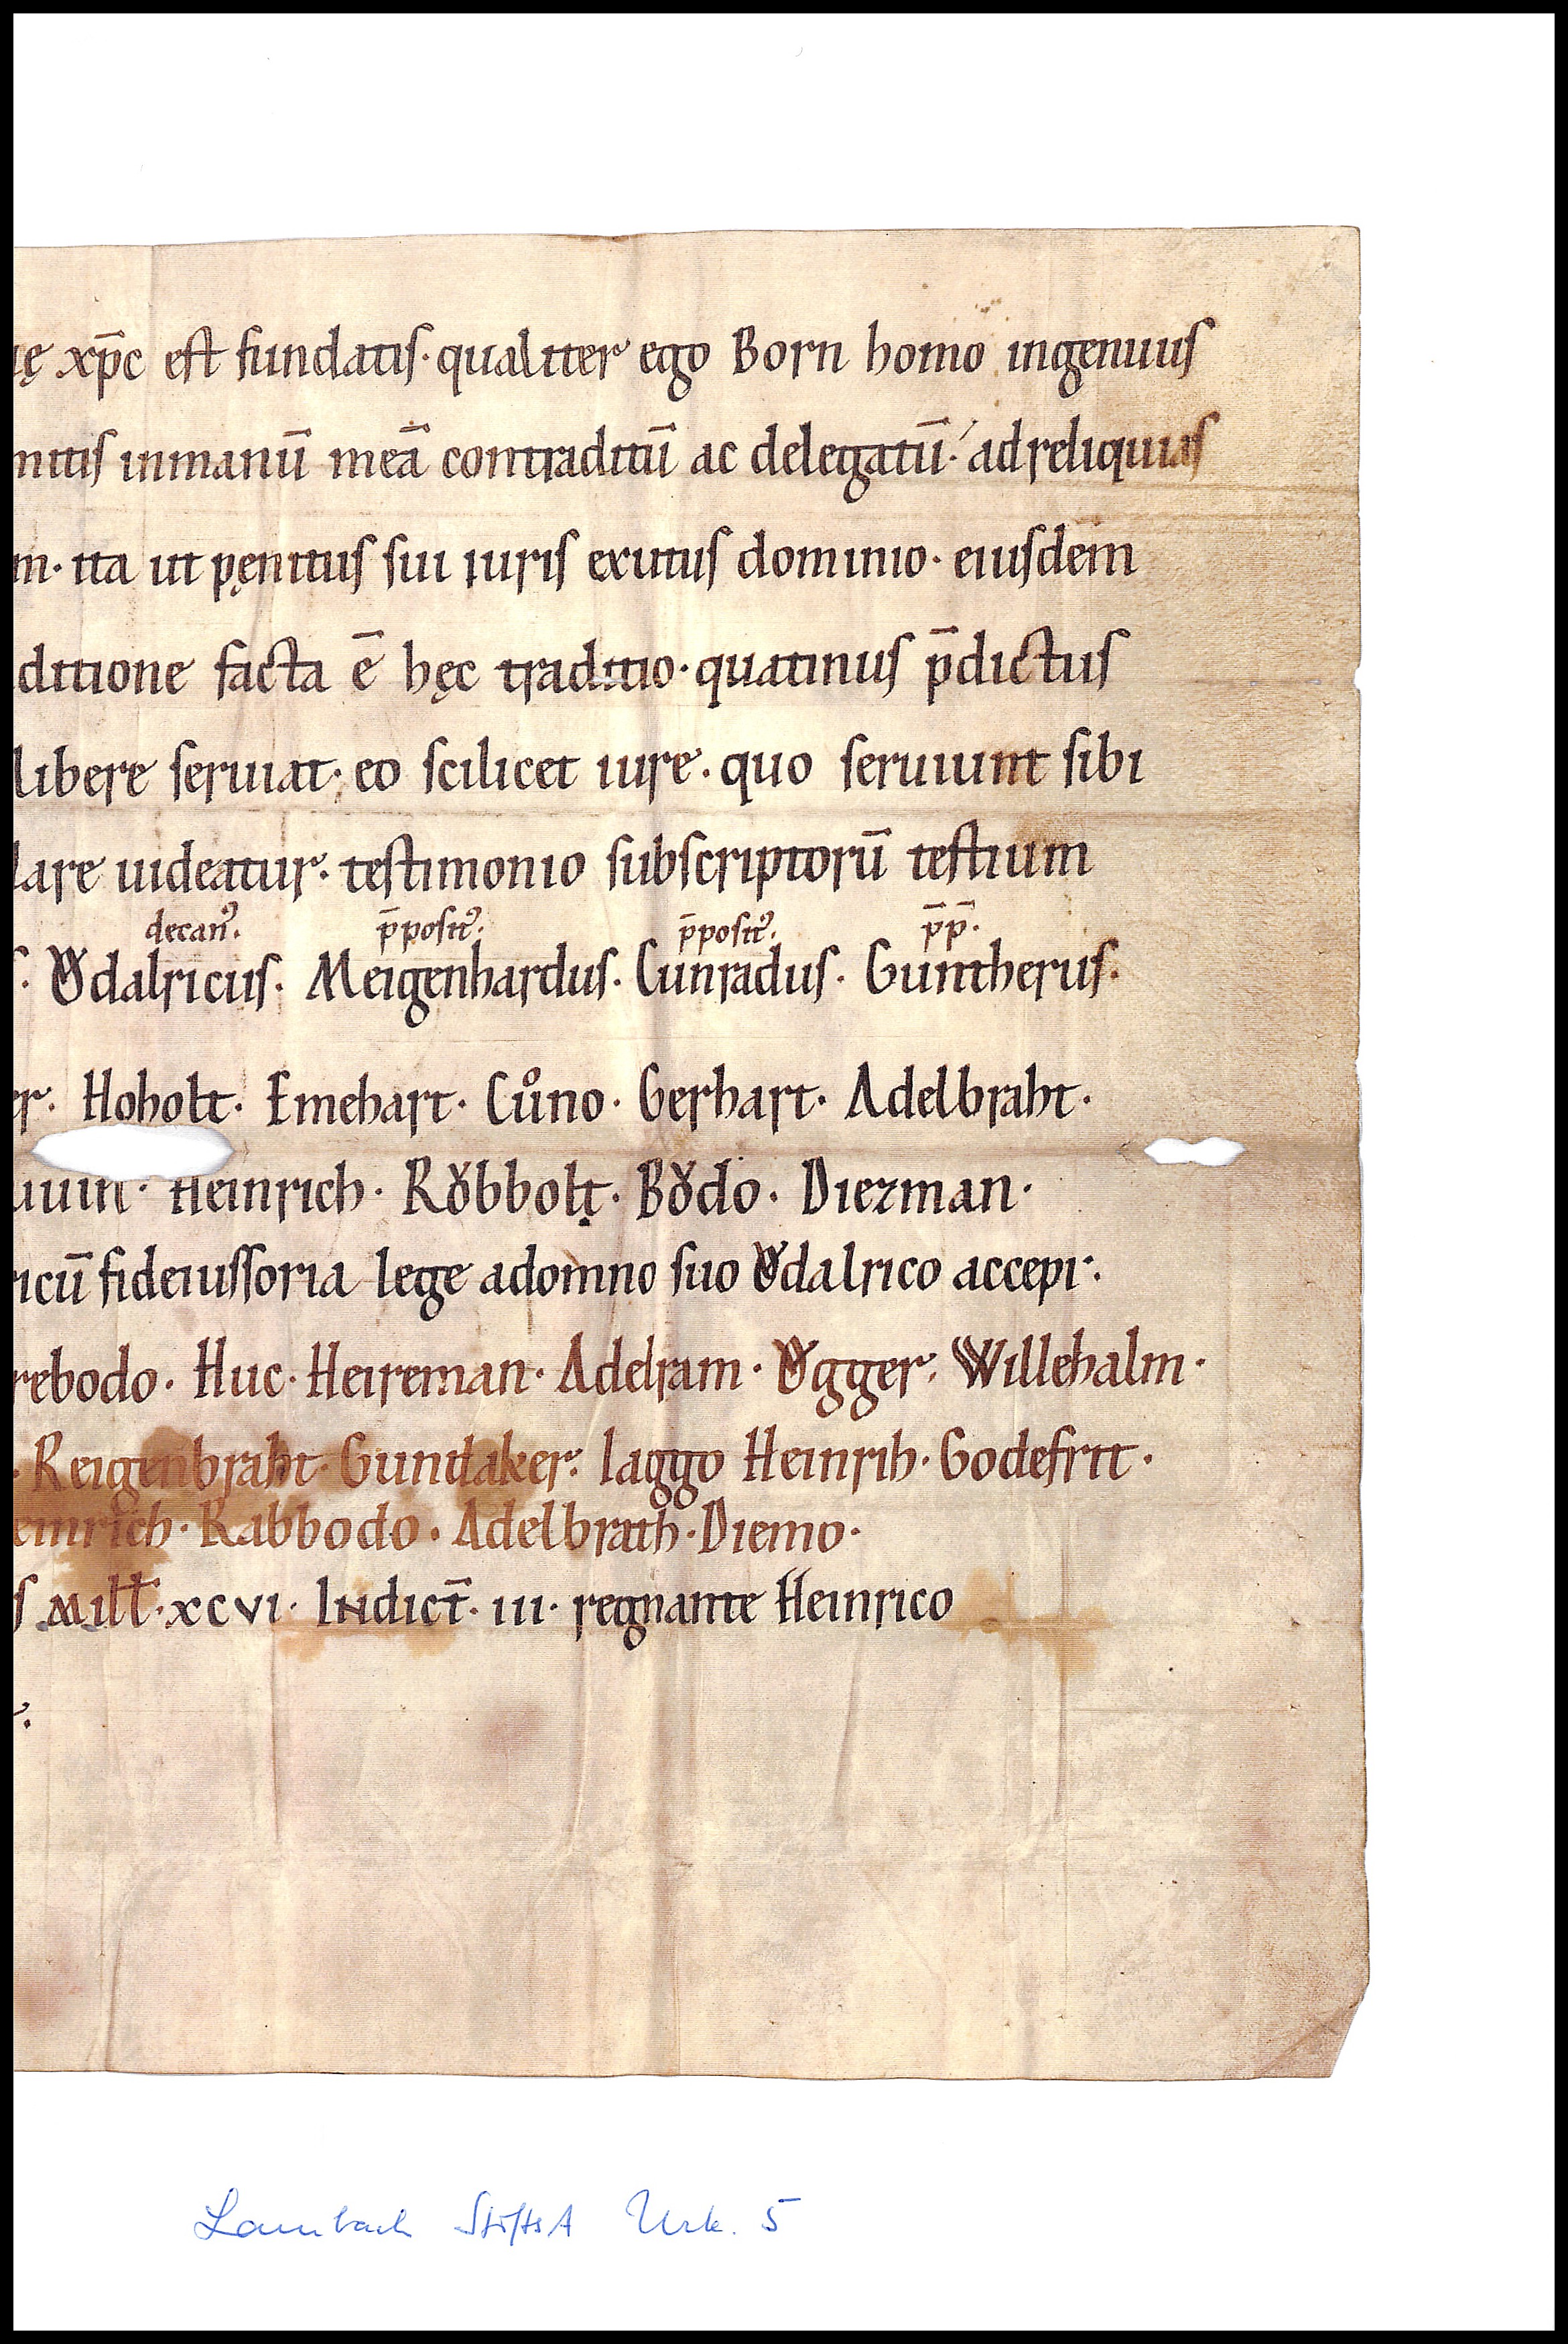 ę xp̄c est fundatis· qualiter ego Born homo ingenuus
nitis inmanū meā contraditū ac delegatū· ad reliquias
m· ita ut pęnitus sui iuris exutus dominio· eiusdem
ditione facta ē hęc traditio· quatinus p̄dictus
libere seruiat· eo scilicet iure· quo seruiunt sibi
lare uideatur· testimonio subscriptorū testium
decanꝰ· p̄positꝰ· p̄positꝰ· p̄p̄·
Ꝩdalricus· Meigenhardus· Cunradus· Guntherus·
er· Hoholt· Emehart· Cůno· Gerhart· Adelbraht·
uuin· Heinrich· Roͮbbolt· Boͮdo· Diezman·
icū fideiussoria lege adomno suo Ꝩdalrico accepi·
rebodo· Huc· Heireman· Adelram· Ꝩgger· Willehalm·
· Reigenbraht· Guntdaker· Iaggo Heinrih· Godefrit·
einrich· Rabbodo· Adelbrath· Diemo·
s Mill̄· xcvi· Indict̄· iii· regnante Heinrico
Lambach StiftsA Urk. 5